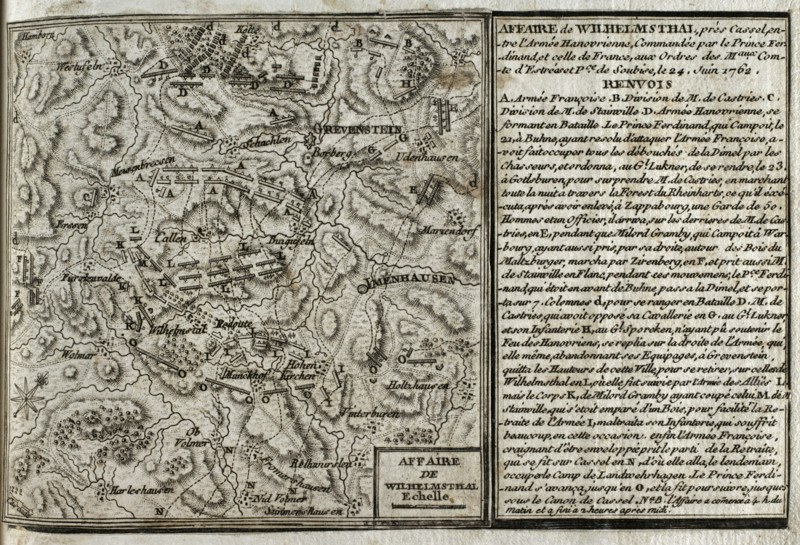 AFFAIRE de WILHELMSTHAL, près Cassel, en-
tre l'Armée Hanovrienne, Commandée par le Prince Fer-
dinand, et celle de France, aux Ordres des M.aux Com-
te d'Estrées et P.ce de Soubise, le 24. Juin 1762.
RENVOIS
A. Armée Françoise. B. Division de M. de Castries. C.
Division de M. de Stainville. D. Armée Hanovrienne, se
formant en Bataille. Le Prince Ferdinand, qui Campoit, le
21, à Buhne, ayant resolu d'attaquer l'Armée Françoise, a-
voit fait occuper tous les débouchés de la Dimel par les
Chasseurs, et ordonna, au G.l Lukner, de se rendre, le 23.
à Gotlsburen, pour surprendre M. de Castries, en marchant
toute la nuit a travers la Forest du Rheinharts, ce qu'il éxé-
cuta, après avoir enlevé, à Zappabourg, une Garde de 50.
Hommes et un Officier, il arriva, sur les derrieres de M. de Cas-
tries, en E, pendant que Milord Granby, qui Campoit à War-
bourg, ayant aussi pris, par sa droite, autour des Bois du
Maltzburger, marcha par Zirenberg, en F, et prit aussi M.
de Stainville en Flanc, pendant ces mouvemens, le P.ce Ferdi-
nand, qui étoit en avant de Buhne, passa la Dimel, et se por-
ta sur 7. Colonnes d, pour se ranger en Bataille D. M. de
Castries, qui avoit opposé sa Cavallerie en G. au G.l Lukner
et son Infanterie H, au G.l Sporoken, n'ayant pû soutenir le
Feu des Hanovriens, se replia sur la droite de l'Armée, qui
elle même, abandonnant ses Equipages, à Grevenstein,
quitta les Hauteurs de cette Ville, pour se retirer, sur celles de
Wilhelmsthal en I, où elle fut suivie par l'Armée des Alliés L
mais le Corps K, de Milord Gramby ayant coupé celui, M. de M.
Stainville, qui s'étoit emparé d'un Bois, pour facilité la Re-
traite de l'Armée I, maltraita son Infanterie, qui souffrit
beaucoup, en cette occasion, enfin l'Armée Françoise,
craignant d'être enveloppé, prit le parti de la Retraite,
qui se fit sur Cassel en N, d'où elle alla, le lendemain,
occuper le Camp de Landwehrhagen. Le Prince Ferdi-
nand s'avança, jusqu'en O, et la fit poursuivre, jusques
sous le Canon de Cassel. N.a B. l'Affaire a comencé à 4. h. du
matin et a fini a 2 heures après midi.
Honberg
Kelte
Westufeln
Schachten
GREVENSTEIN
Borberg
Udenhausen
Meusenbressen
Ersen
Callen
Mariendorf
Furstenwalde
IMENHAUSEN
Wilhelmstat
Redoute
Wolmar
Munchhof
Hohen
Kirchen
Holtzhausen
Winterburen
Ob
Volmer
Rothwurslen
Fromershausen
Harleshausen
Nid Volmer
Simmershausen
AFFAIRE
DE
WILHELMSTHAL
Echelle